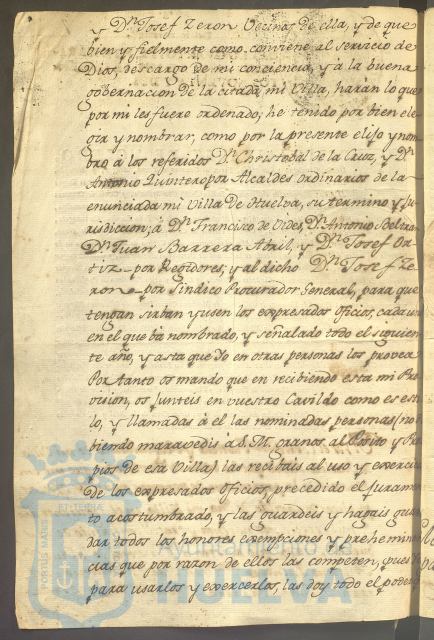 y Dn. Josef Zeron Vecinos de ella, y de que
bien y fielmente como conviene al servicio de
Dios, descargo de mi conciencia, y á la buena
gobernacion de la citada mi Villa, harán lo que
por mi les fuere ordenado; he tenido por bien ele-
gir y nombrar, como por la presente elijo y nom
bro á los referidos Dn. Christobal de la Cruz, y Dn.
Antonio Quintero por Alcaldes ordinarios de la
enunciada mi Villa de Huelva, su termino y Ju-
risdiccion; á Dn. Francisco de Vides, Dn. Antonio Beltran
Dn. Juan Barrera Abril, y Dn. Josef Or-
tiz por Regidores; y al dicho Dn. Josef Ze-
ron por Sindico Procurador General, para que
tengan sirban y usen los expresados oficios, cada u
en el que bá nombrado, y señalado todo el siguien
te año, y asta que Yo en otras personas los provea
Por tanto os mando que en recibiendo esta mi Pro
vision, os Junteis en vuestro Cavildo como es esti
lo, y llamadas á el las nominadas personas (no
biendo maravedis a S. M. granos al Posito y Pro
pios de esa Villa) las recibais al uso y exercicio
de los expresados oficios, precedido el Juramen
to acostumbrado, y las guardeis y hagais guar
dar todos los honores exempciones y prehemin
cias que por razon de ellos las competen, pues
para usarlos y exercerlos, las doy todo el poder
PORTUS MARIS
Ayuntamiento de
HUELVA